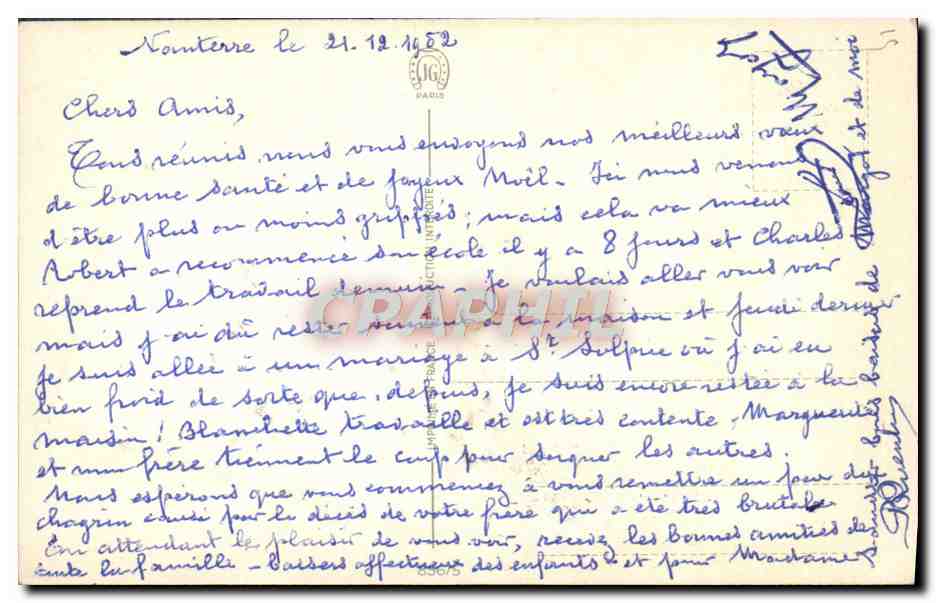 Nanterre le 21.12.1952
JG
PARIS
Chers Amis,
Tous réunis nous vous envoyons nos meilleurs vœux
de bonne santé et de joyeux Noël. Ici nous venons
d'être plus ou moins grippés; mais cela va mieux
Robert a recommencé son école il y a 8 jours et Charles
reprend le travail demain. Je voulais aller vous voir
mais j'ai dû rester à la maison et jeudi dernier
je suis allée à un mariage à St. Sulpice où j'ai eu
bien froid de sorte que, depuis, je suis encore restée à la
maison! Blanchette travaille et est très contente. Marguerite
et mon frère tiennent le coup pour soigner les autres.
Nous espérons que vous commencez à vous remettre un peu du
chagrin causé par le décès de votre frère qui a été très brutale
En attendant le plaisir de vous voir, recevez les bonnes amitiés de
toute la famille - baisers affectueux des enfants et pour Madame
bons baisers de Margot et de moi
CRAPHIL
IMPRIMÉ EN FRANCE REPRODUCTION INTERDITE
836/5